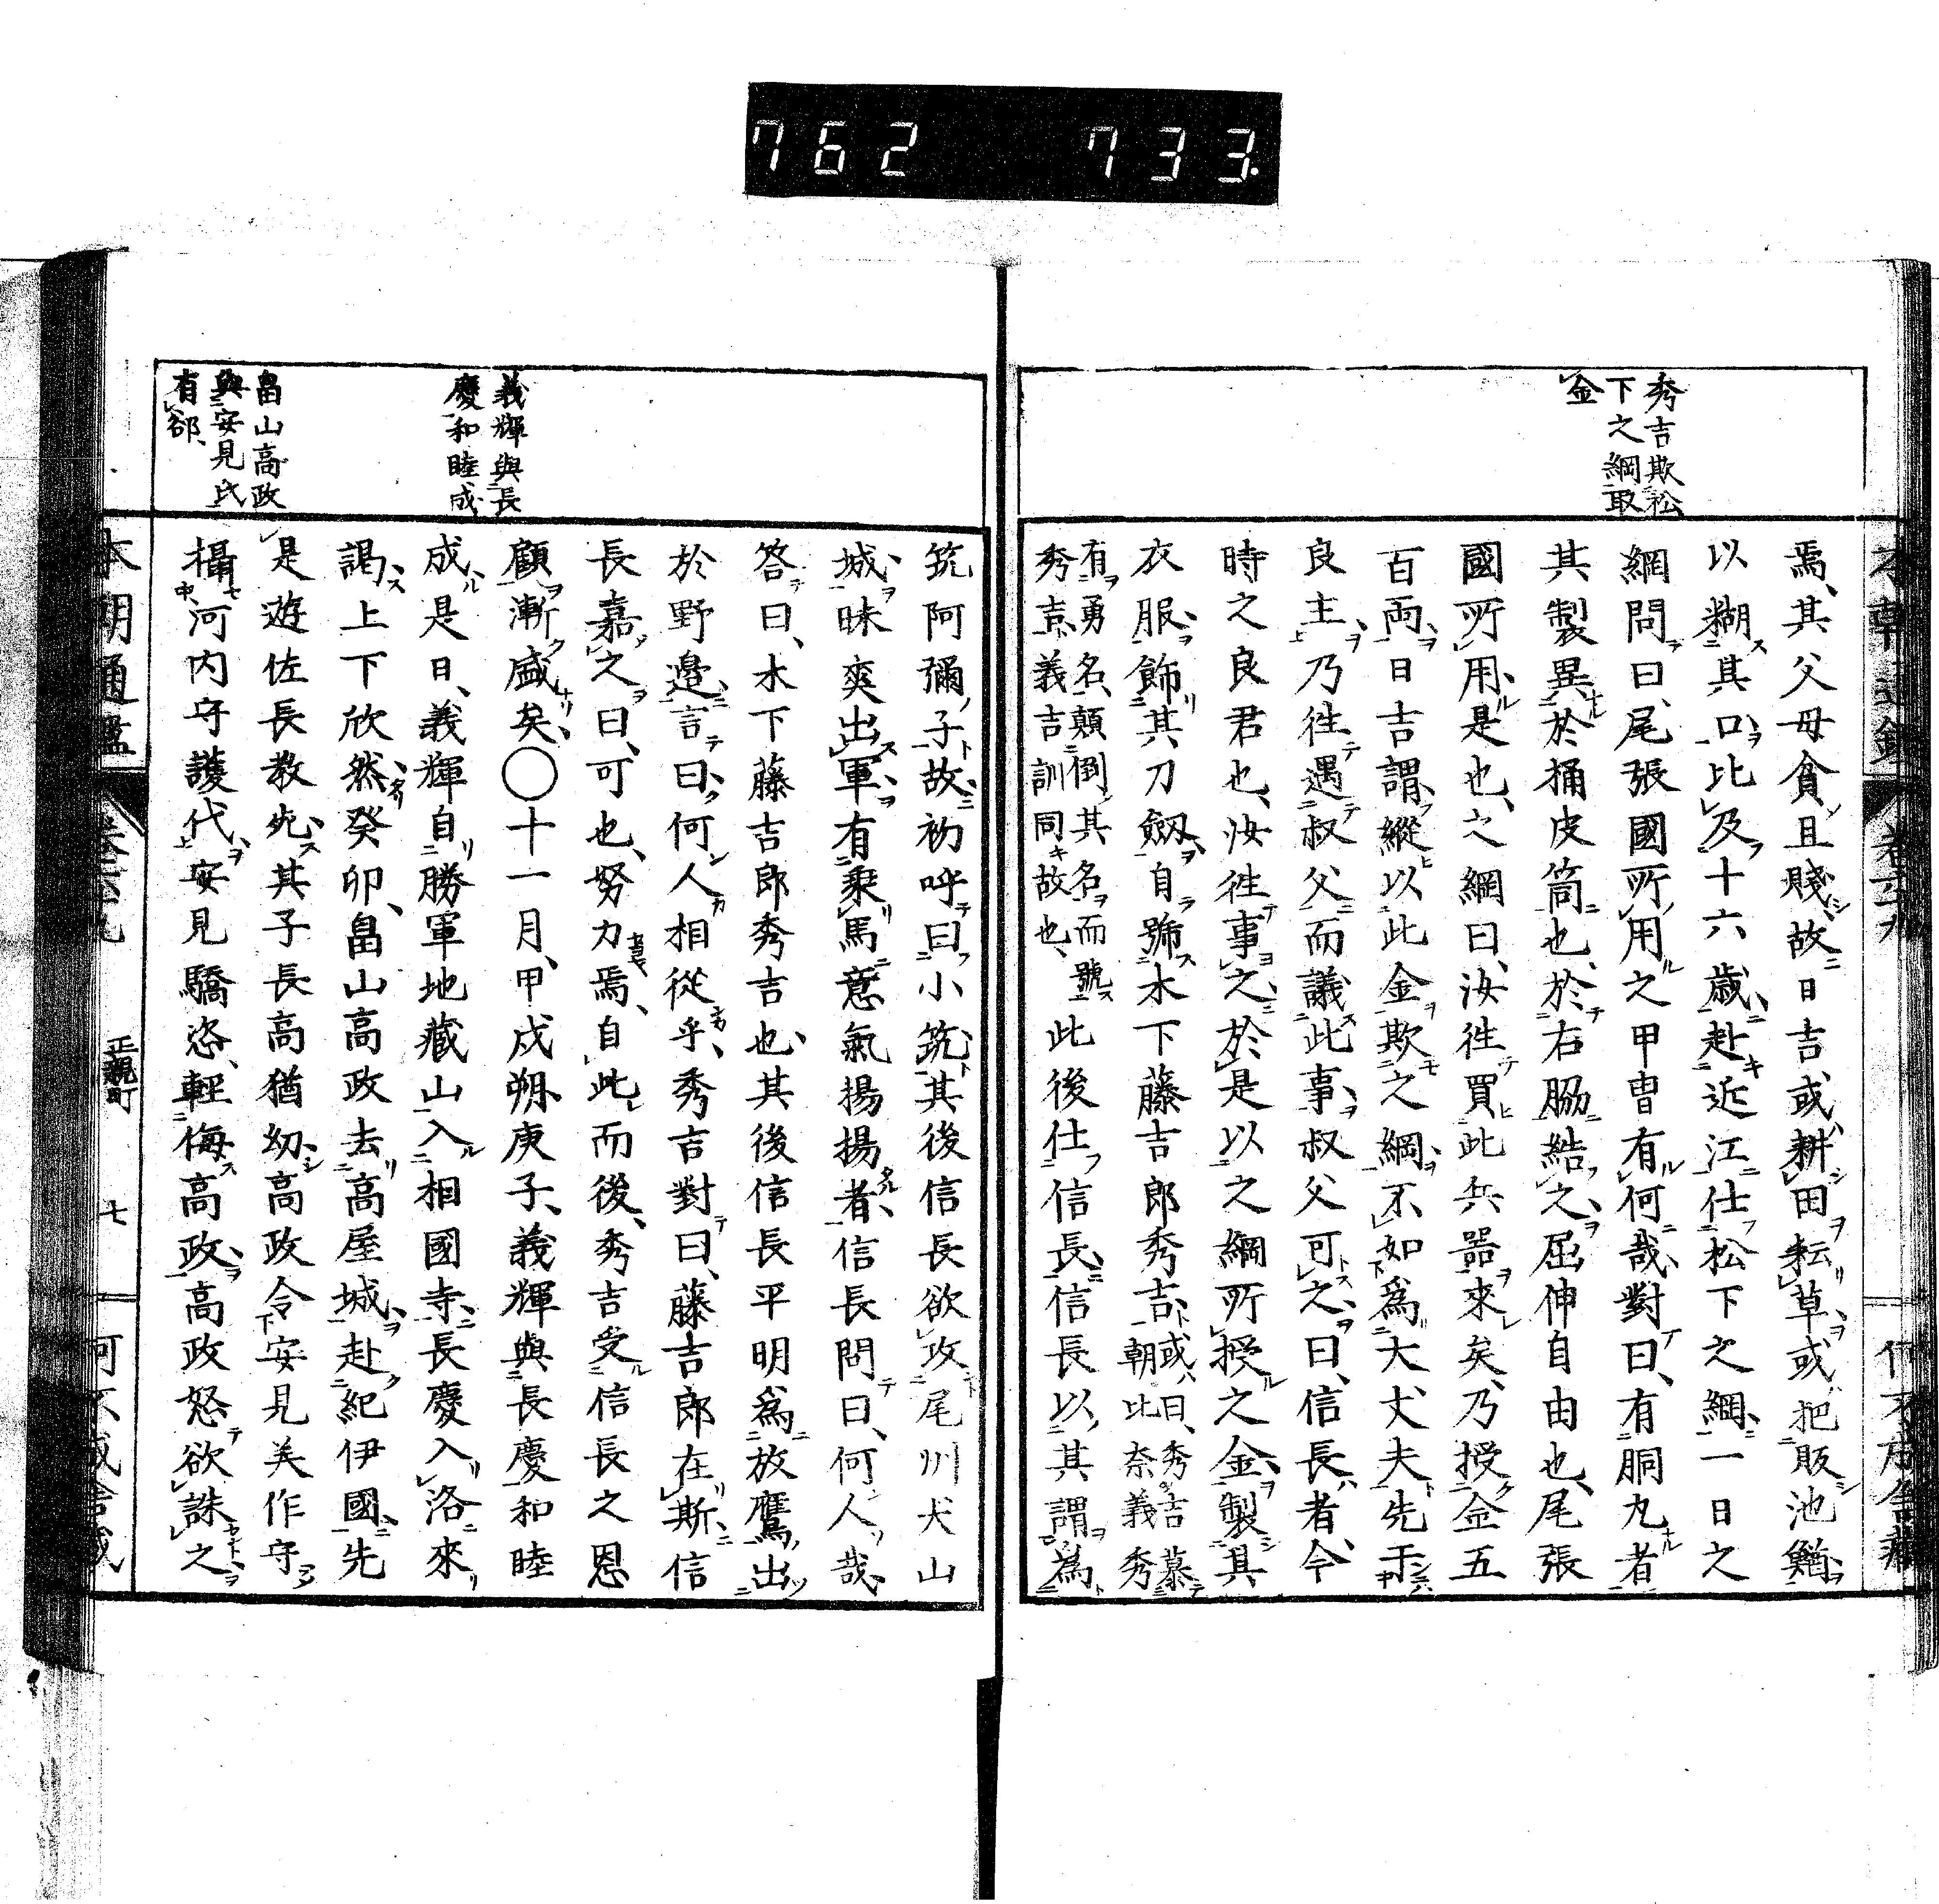 762 733.
秀吉欺松
下之綱取
金
焉、其父母貧且賤、故日吉、或耕田耘草、或把販池鰌、
以糊其口、比及十六歳、赴近江、仕松下之綱、一日之
綱問曰、尾張國所用之甲冑有何哉、對曰、有胴丸者、
其製異於桶皮筒也、於右脇結之、屈伸自由也、尾張
國所用是也、之綱曰、汝徃買此兵器來矣、乃授金五
百兩、日吉謂、縱以此金欺之綱、不如爲大丈夫、先
良主、乃徃遇叔父而議此事、叔父可之曰、信長者、今
時之良君也、汝徃事之、於是以之綱所授之金、製其
衣服、飾其刀劔、自號木下藤吉郎秀吉、或曰、秀吉慕朝比奈義秀
有勇名、顛倒其名而號秀吉、義吉訓同故也、此後仕信長、信長以其謂爲
筑阿彌子、故初呼曰小筑、其後信長欲攻尾州犬山
城、昧爽出軍、有乘馬意氣揚揚者、信長問曰、何人哉、
答曰、木下藤吉郎秀吉也、其後信長平明爲放鷹出
於野邉、言曰、何人相從乎、秀吉對曰、藤吉郎在斯、信
長嘉之曰、可也、努力焉、自此而後、秀吉受信長之恩
顧漸盛矣、○十一月、甲戌朔、庚子、義輝與長慶和睦
成、是日、義輝自勝軍地藏山入相國寺、長慶入洛來
謁、上下欣然、癸卯、畠山高政去高屋城、赴紀伊國、先
是遊佐長教死、其子長高猶幼、高政令安見美作守
攝河内守護代、安見驕恣、輕侮高政、高政怒欲誅之
義輝與長
慶和睦成
畠山高政
與安見氏
有郤、
本朝通鑑
正親町
七